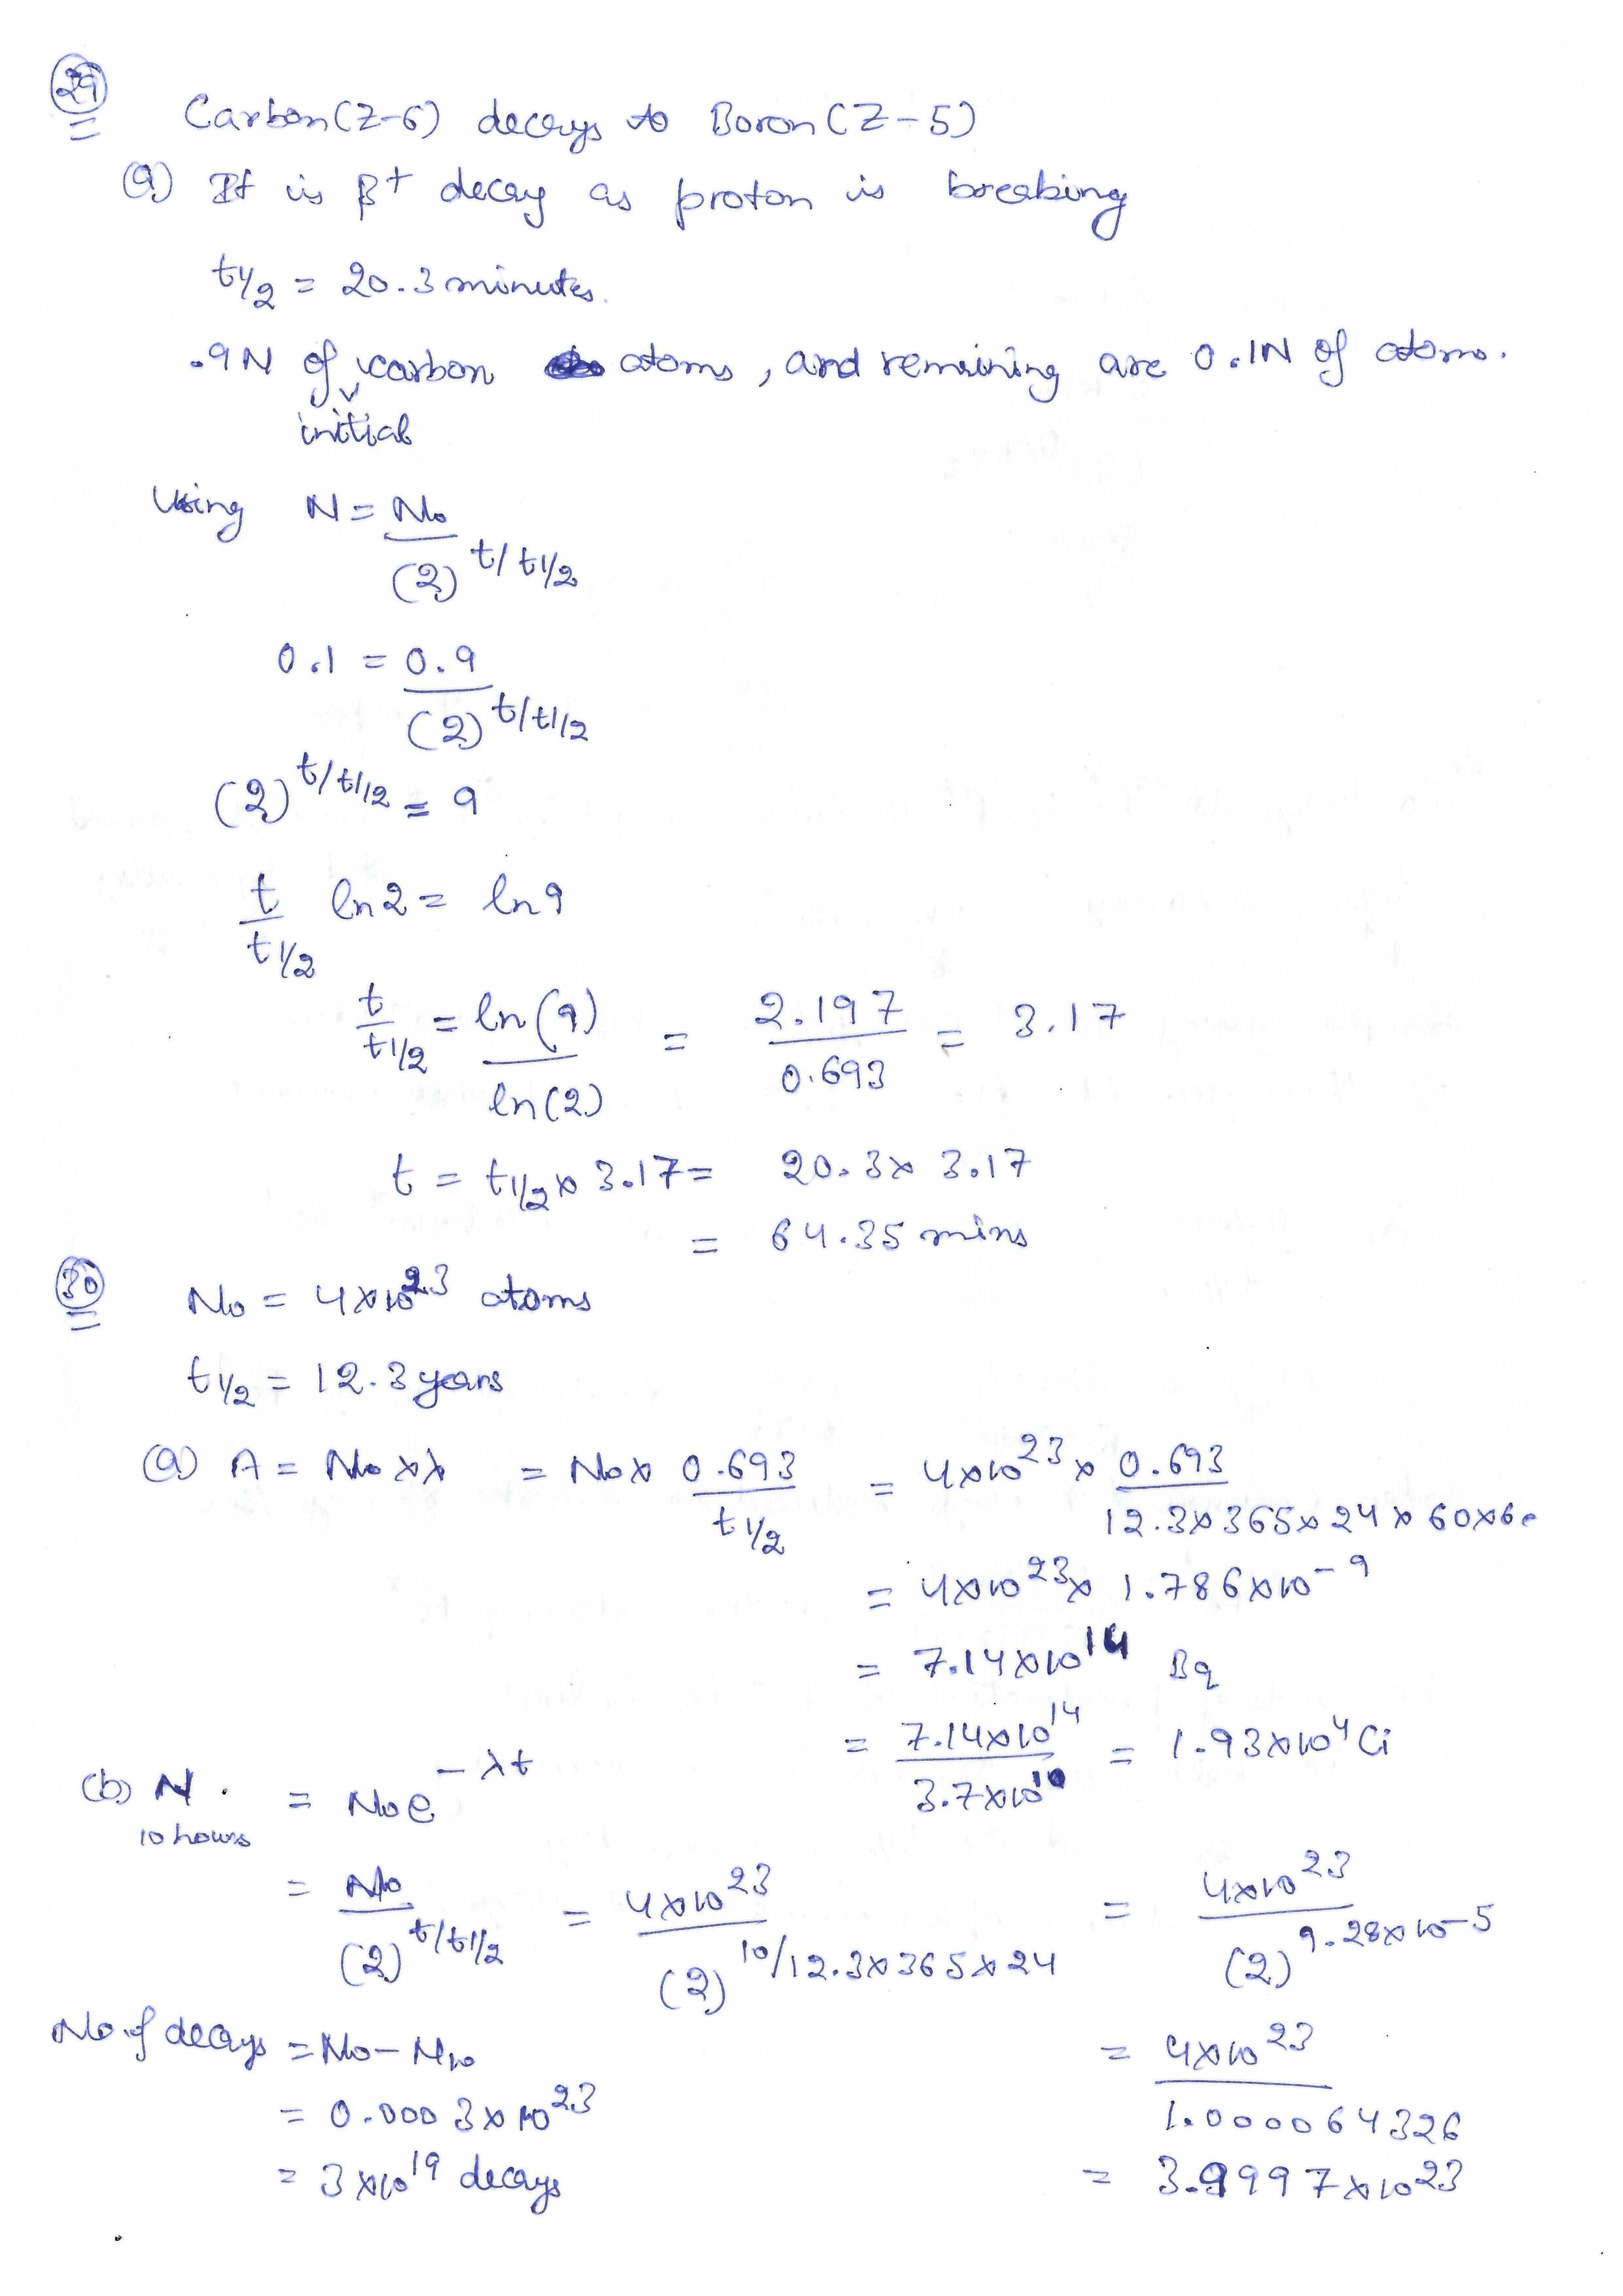 29
Carbon(Z-6) decays to Boron(Z-5)
(a) It is β+ decay as proton is breaking
t1/2 = 20.3 minutes.
.9N of carbon atoms, and remaining are 0.1N of atoms.
initial
Using N = No / (2)^t/t1/2
0.1 = 0.9 / (2)^t/t1/2
(2)^t/t1/2 = 9
t / t1/2 ln2 = ln9
t / t1/2 = ln(9) / ln(2) = 2.197 / 0.693 = 3.17
t = t1/2 x 3.17 = 20.3 x 3.17
= 64.35 mins
30
No = 4x10^23 atoms
t1/2 = 12.3 years
(a) A = No x λ = No x 0.693 / t1/2 = 4x10^23 x 0.693 / 12.3x365x24x60x60
= 4x10^23 x 1.786x10^-9
= 7.14x10^14 Bq
= 7.14x10^14 / 3.7x10^10 = 1.93x10^4 Ci
(b) N 10 hours = No e^-λt
= No / (2)^t/t1/2 = 4x10^23 / (2)^10/12.3x365x24 = 4x10^23 / (2)^9.28x10^-5
= 4x10^23 / 1.000064326
= 3.9997x10^23
No. of decays = No - N10
= 0.0003x10^23
= 3x10^19 decays